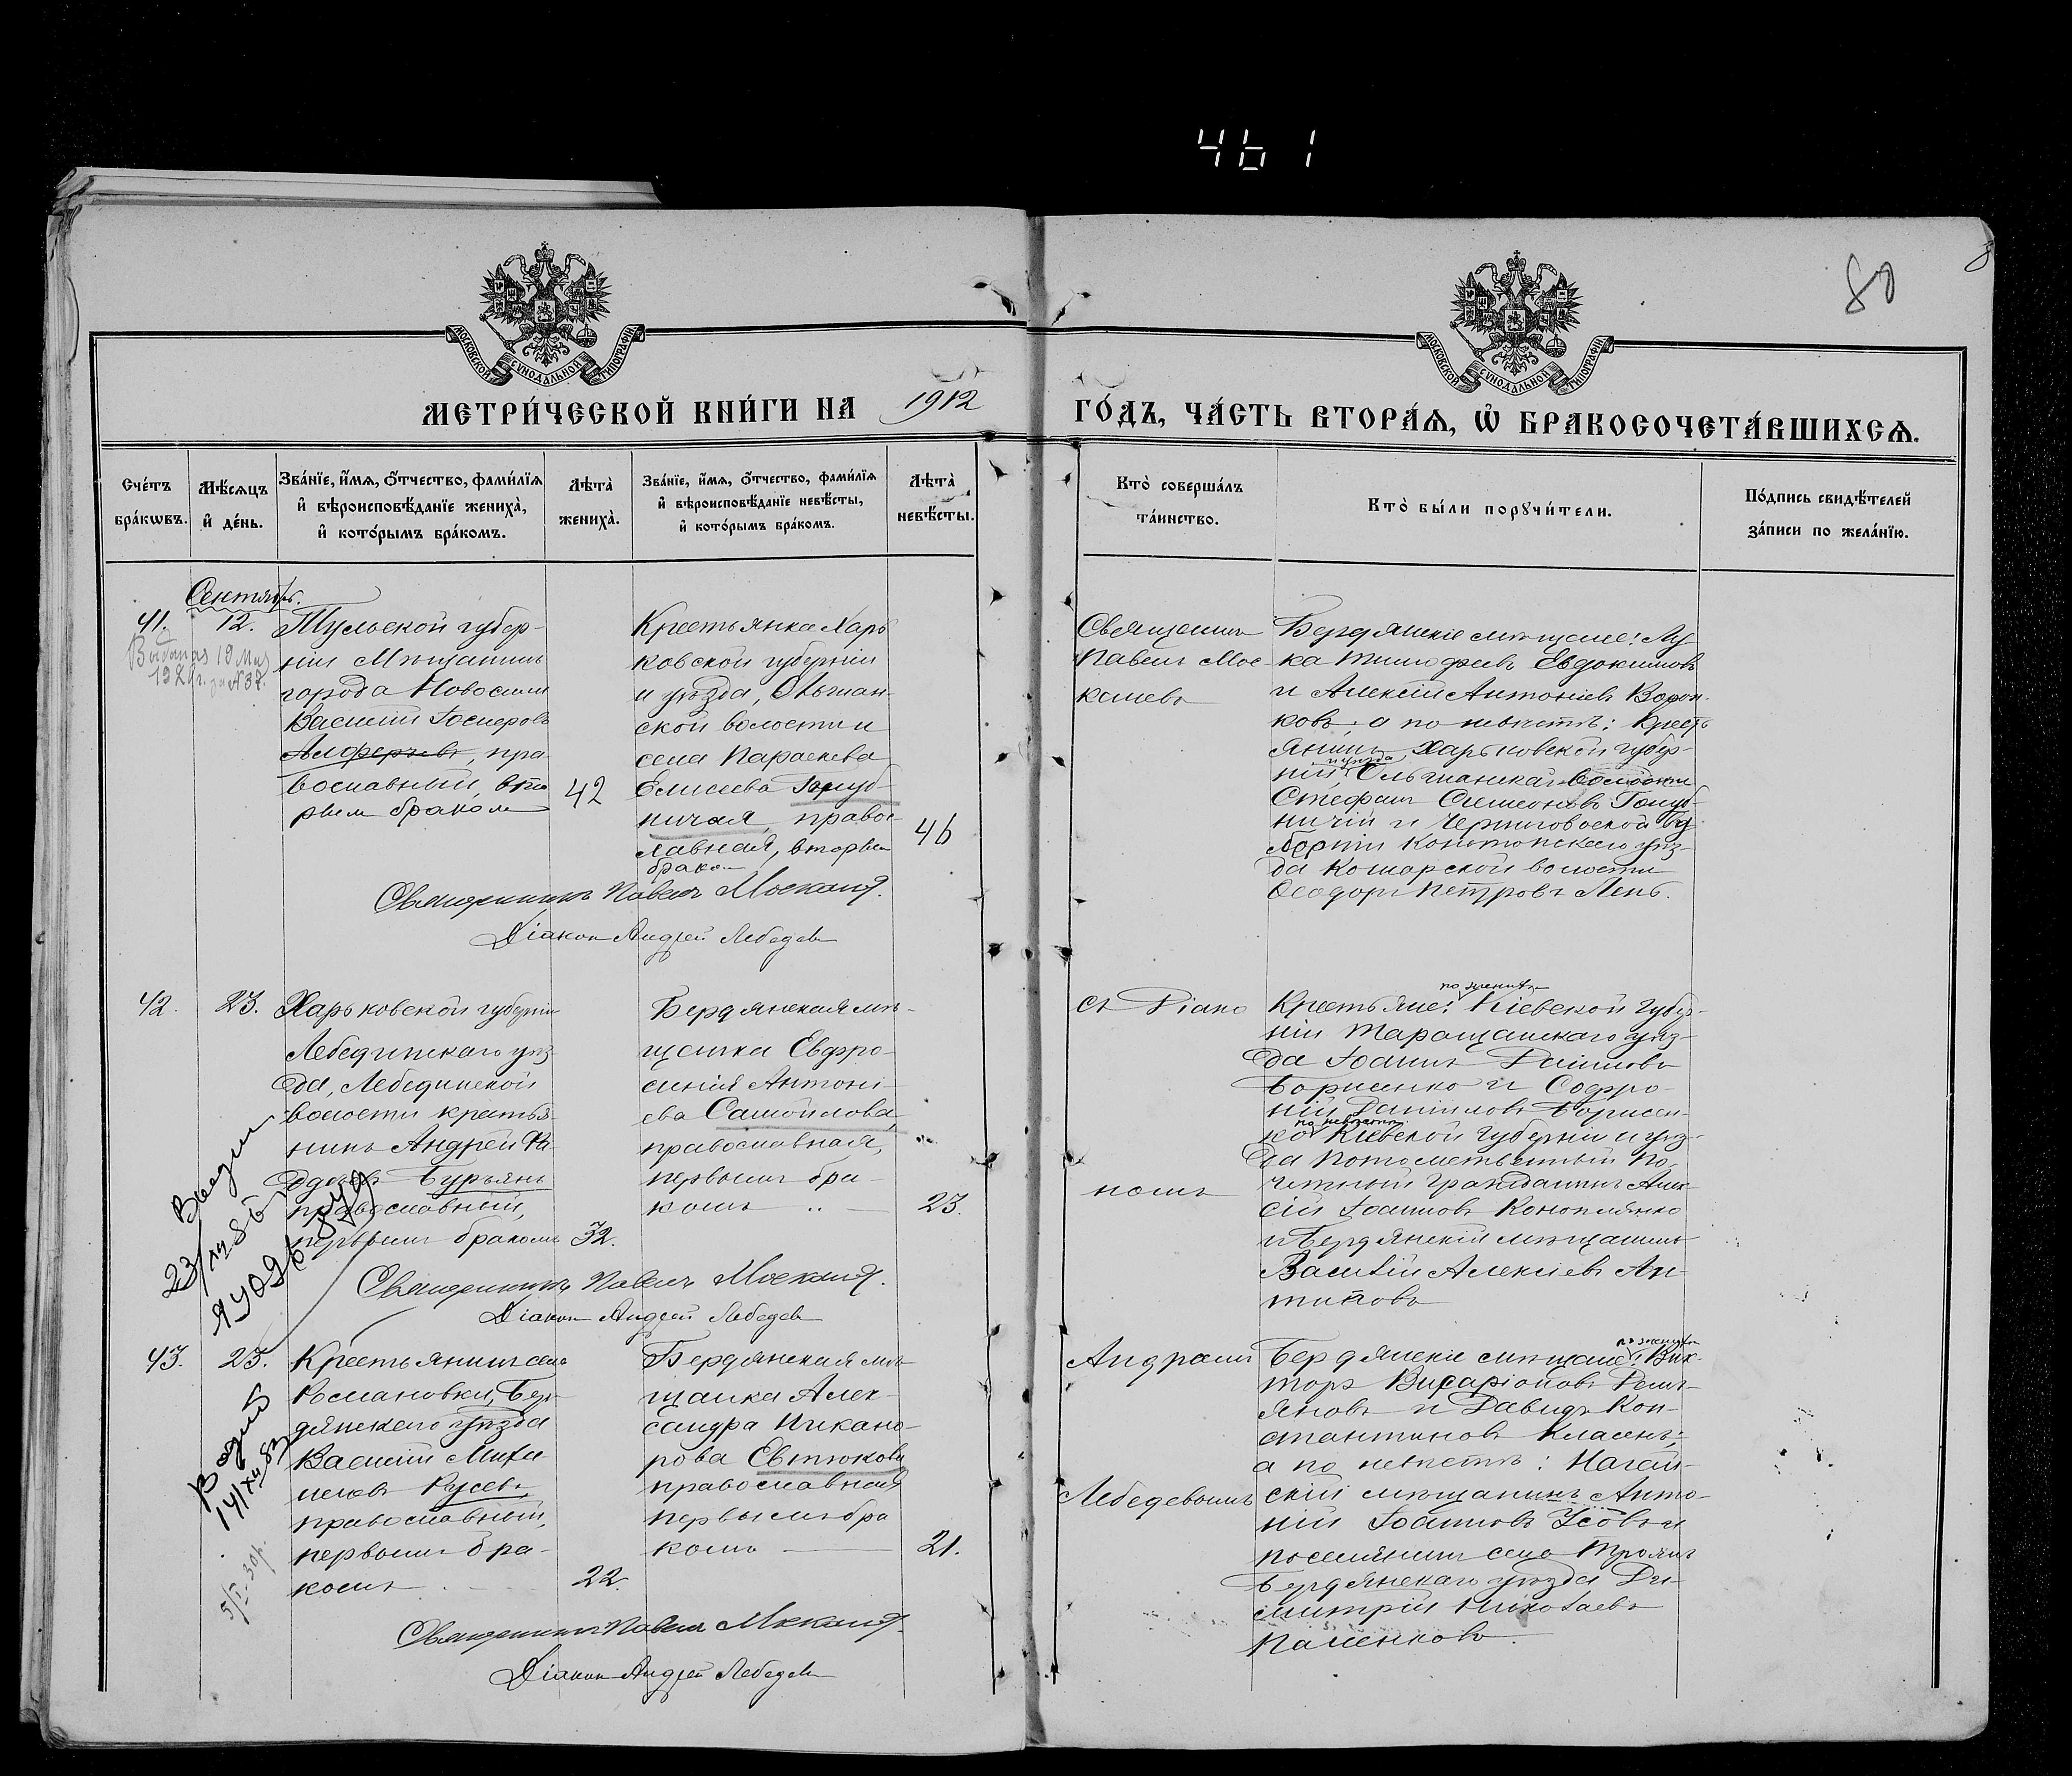 461
80
МОСКОВСКОЙ СѴНОДАЛЬНОЙ ТИПОГРАФІИ
МОСКОВСКОЙ СѴНОДАЛЬНОЙ ТИПОГРАФІИ
МЕТРИ́ЧЕСКОЙ КНИ́ГИ НА 1912 ГО́ДЪ, ЧА́СТЬ ВТОРА́Ѧ, Ѽ БРАКОСОЧЕТА́ВШИХСѦ.
Сче́тъ бра́кѡвъ.
Мѣ́сѧцъ и҆ де́нь.
Зва́нїе, и҆́мѧ, о҆́тчество, фами́лїѧ
и҆ вѣроисповѣ́данїе жениха̀,
и҆ кото́рымъ бра́комъ.
Лѣта̀ жениха̀.
Зва́нїе, и҆́мѧ, о҆́тчество, фами́лїѧ
и҆ вѣроисповѣ́данїе невѣ́сты,
и҆ кото́рымъ бра́комъ.
Лѣта̀ невѣ́сты.
Кто̀ соверша́лъ та́инство.
Кто̀ бы́ли порꙋчи́тели.
По́дпись свидѣ́телей за́писи по жела́нїю.
Сентябрь.
41.
12.
Тульской губер-
ніи Мѣщанинъ
города Новосиля
Василій
Алферьевъ, пра
вославный,
рымъ бракомъ
42
Крестьянка Харь
ковской губерніи
и уѣзда, Ольшан-
ской волости и
села Параскева
Елисеева Голуб-
ничая, правос-
лавная, вторым
браком
46
Священникъ
Павелъ Мос
калевъ
Бердянскіе мѣщане: Лу
ка Тимофеевъ Евдокимовъ
и Алексій Антоніевъ Ворон-
ковъ; а по невѣстѣ: Кресть
янинъ Харьковской губер-
ніи и уѣзда, Ольшанской волости
Стефанъ Симеоновъ Голуб-
ничій и Черниговской гу
берніи Конотопскаго уѣз-
да волости
Ѳеодоръ Петровъ Лень.
Священникъ Павелъ Москалев.
Діакон Андрей Лебедев
42.
23.
Харьковской губерніи
Лебединскаго уѣз-
да, Лебединской
волости крестья
нинъ Андрей
Бурьянъ
православный,
первымъ бракомъ
32.
Бердянская мѣ-
щанка Евфро-
синія Антоні-
ева Самойлова,
православная,
первымъ бра-
комъ
23.
съ Діако
номъ
Крестьяне: по жениху Кіевской губер-
ніи Таращанскаго уѣз-
да Іоаннъ Даніиловъ
Борисенко и Софро-
ній Даніиловъ Борисен-
ко по невѣстѣ: Кіевской губерніи и уѣз-
да потомственный по-
четный гражданинъ Алек
сій Іоанновъ Коноплянко
и Бердянскій мѣщанинъ
Василій Алексіевъ Ан-
типовъ
Священникъ Павелъ Москалев.
Діакон Андрей Лебедев
43.
25.
Крестьянинъ села
Романовки, Бер-
дянскаго уѣзда
Василій Михаи
ловъ Русевъ,
православный,
первымъ бра-
комъ
22.
Бердянская мѣ
щанка Алек-
сандра Никано-
рова Евтюкова
православная
первымъ бра
комъ
21.
Андреемъ
Лебедевымъ
Бердянскіе мѣщане: по жениху Вик-
торъ Виссаріоновъ Демь-
яновъ и Давидъ Кон-
стантиновъ Класенъ;
а по невѣстѣ: Ногай-
скій мѣщанинъ Анто-
ній Іоанновъ Усовъ и
поселянинъ села Троянъ
Бердянскаго уѣзда Ди-
митрій Николаевъ
Паленковъ.
Священникъ Павелъ Москалев.
Діакон Андрей Лебедев